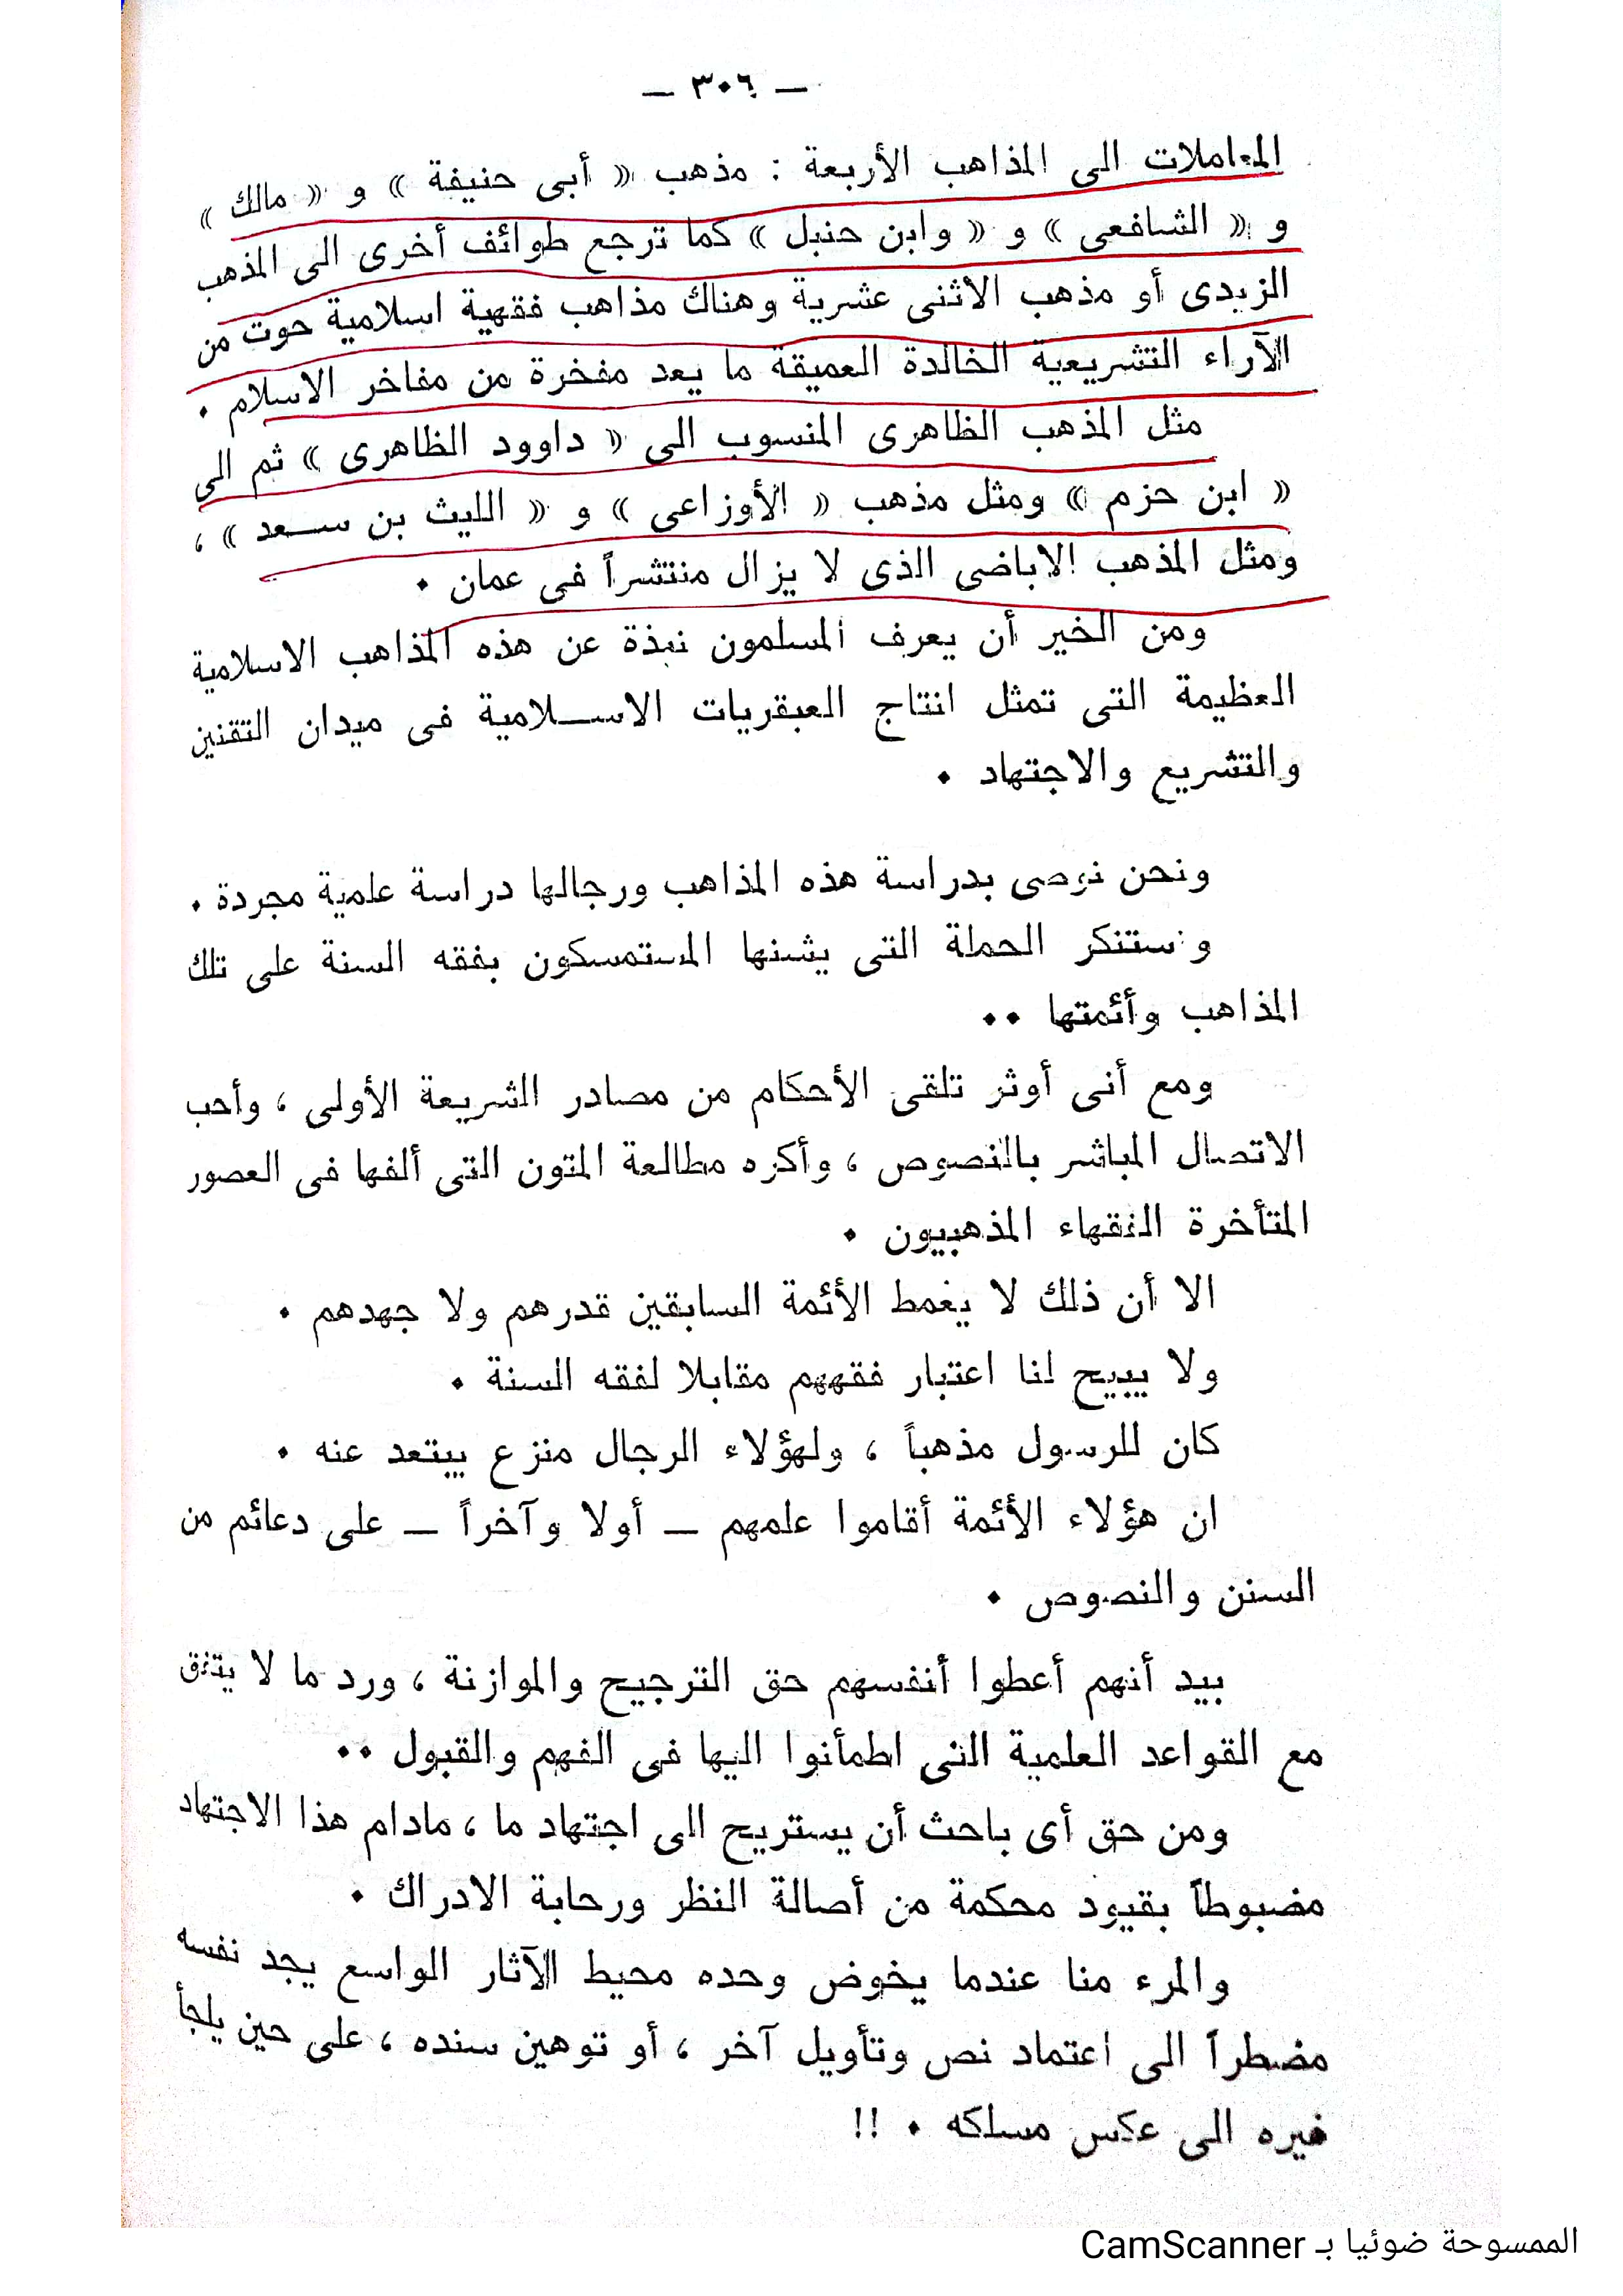 — ٣٠٦ —
المعاملات الى المذاهب الأربعة : مذهب « أبى حنيفة » و « مالك »
و « الشافعى » و « وابن حنبل » كما ترجع طوائف أخرى الى المذهب
الزيدى أو مذهب الاثنى عشرية وهناك مذاهب فقهية اسلامية حوت من
الآراء التشريعية الخالدة العميقة ما يعد مفخرة من مفاخر الاسلام .
مثل المذهب الظاهرى المنسوب الى « داوود الظاهرى » ثم الى
« ابن حزم » ومثل مذهب « الأوزاعى » و « الليث بن سعد » ،
ومثل المذهب الاباضى الذى لا يزال منتشراً فى عمان .
ومن الخير أن يعرف المسلمون نبذة عن هذه المذاهب الاسلامية
العظيمة التى تمثل انتاج العبقريات الاسلامية فى ميدان التقنين
والتشريع والاجتهاد .
ونحن نوصى بدراسة هذه المذاهب ورجالها دراسة علمية مجردة .
ونستنكر الحملة التى يشنها المستمسكون بفقه السنة على تلك
المذاهب وأئمتها ..
ومع أنى أوثر تلقى الأحكام من مصادر الشريعة الأولى ، وأحب
الاتصال المباشر بالنصوص ، وأكره مطالعة المتون التى ألفها فى العصور
المتأخرة الفقهاء المذهبيون .
الا أن ذلك لا يغمط الأئمة السابقين قدرهم ولا جهدهم .
ولا يبيح لنا اعتبار فقههم مقابلا لفقه السنة .
كان للرسول مذهباً ، ولهؤلاء الرجال منزع يبتعد عنه .
ان هؤلاء الأئمة أقاموا علمهم — أولا وآخراً — على دعائم من
السنن والنصوص .
بيد أنهم أعطوا أنفسهم حق الترجيح والموازنة ، ورد ما لا يتفق
مع القواعد العلمية التى اطمأنوا اليها فى الفهم والقبول ..
ومن حق أى باحث أن يستريح الى اجتهاد ما ، مادام هذا الاجتهاد
مضبوطاً بقيود محكمة من أصالة النظر ورحابة الادراك .
والمرء منا عندما يخوض وحده محيط الآثار الواسع يجد نفسه
مضطراً الى اعتماد نص وتأويل آخر ، أو توهين سنده ، على حين يلجأ
غيره الى عكس مسلكه . !!
الممسوحة ضوئيا بـ CamScanner